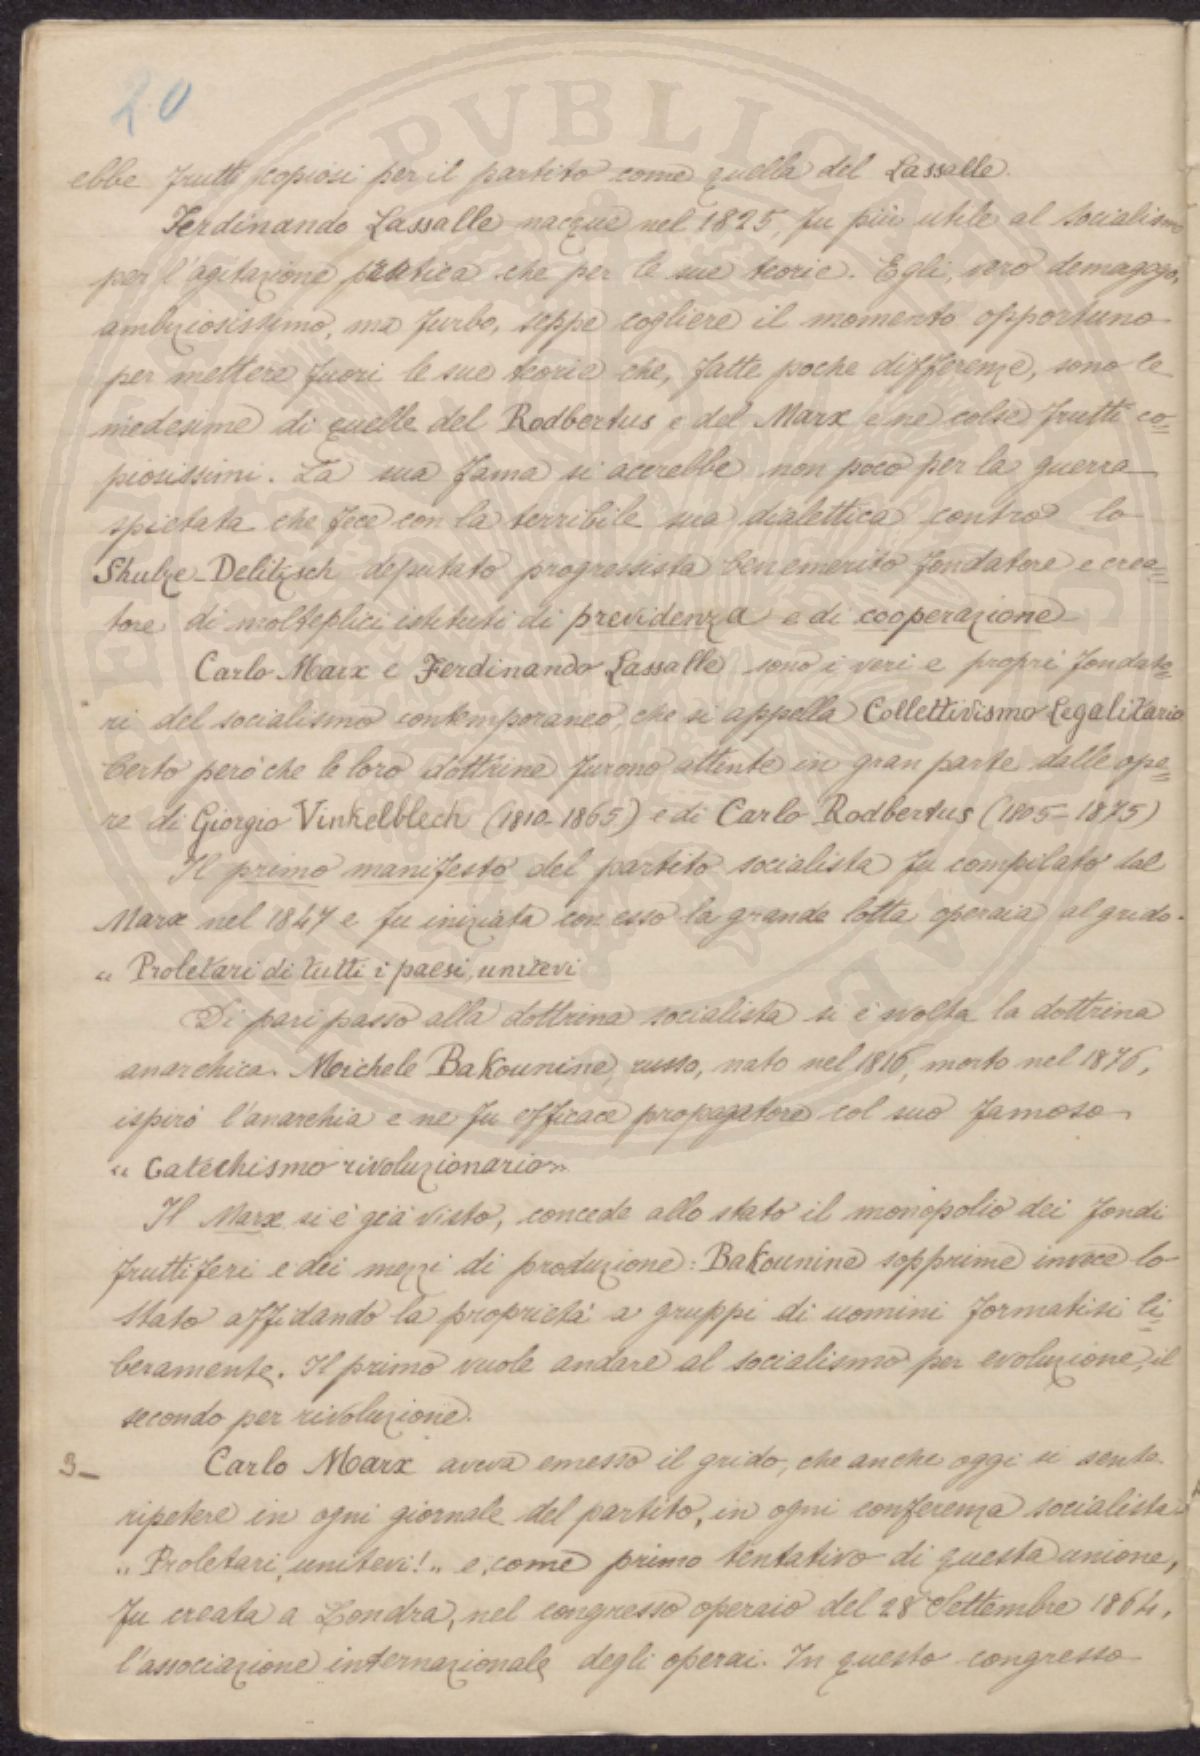 20
ebbe frutti copiosi per il partito come quella del Lassalle.
Ferdinando Lassalle nacque nel 1825, fu più utile al socialismo
per l'agitazione pratica che per le sue teorie. Egli, vero demagogo,
ambiziosissimo, ma furbo, seppe cogliere il momento opportuno
per mettere fuori le sue teorie che, fatte poche differenze, sono le
medesime di quelle del Rodbertus e del Marx e ne colse frutti co=
piosissimi. La sua fama si accrebbe non poco per la guerra
spietata che fece con la terribile sua dialettica contro lo
Shulze-Delitzsch deputato progressista benemerito fondatore e crea=
tore di molteplici istituti di previdenza e di cooperazione
Carlo Marx e Ferdinando Lassalle sono i veri e propri fondato=
ri del socialismo contemporaneo, che si appella Collettivismo Legalitario
Certo però che le loro dottrine furono attinte in gran parte dalle ope=
re di Giorgio Vinkelblech (1810-1865) e di Carlo Rodbertus (1805-1875)
Il primo manifesto del partito socialista fu compilato dal
Marx nel 1847 e fu iniziata con esso la grande lotta operaia al grido.
" Proletari di tutti i paesi, unitevi
Di pari passo alla dottrina socialista si è svolta la dottrina
anarchica. Michele Bakounine, russo, nato nel 1816, morto nel 1876,
ispirò l'anarchia e ne fu efficace propagatore col suo famoso
" Catechismo rivoluzionario"
Il Marx si è già visto, concede allo stato il monopolio dei fondi
fruttiferi e dei mezzi di produzione: Bakounine sopprime invece lo
Stato affidando la proprietà a gruppi di uomini formatisi li=
beramente. Il primo vuole andare al socialismo per evoluzione, il
secondo per rivoluzione.
3- Carlo Marx aveva emesso il grido, che anche oggi si sente
ripetere in ogni giornale del partito, in ogni conferenza socialista
" Proletari, unitevi! " e, come primo tentativo di questa unione,
fu creata a Londra, nel congresso operaio del 28 Settembre 1864,
l'associazione internazionale degli operai. In questo congresso